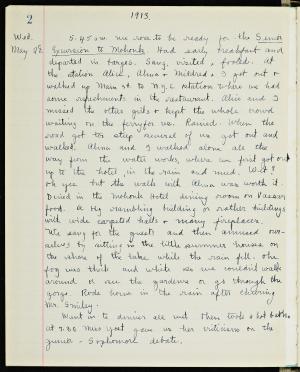 2
1913.
Wed. 5.45 a.m. we rose to be ready for the Senior
May 28. Excursion to Mohonk. Had early breakfast and
departed in barges. Sang, visited & fooled. At
the station Alice, Alma & Mildred & I got out &
walked up Main St. to N.Y.C. station where we had
some refreshments in the restaurant. Alice and I
missed the other girls & kept the whole crowd
waiting on the ferry for us. Rained. When the
road got too steep several of us got out and
walked. Alma and I walked alone all the
way from the water works, where we first got out
up to the hotel, in the rain and mud. Wet?
Oh yes but the walk with Alma was worth it.
Dined in the Mohonk Hotel dining room on Vassar
food. A big rambling building or rather buildings
with wide carpeted halls & many fireplaces.
We sang for the guests and then amused our-
selves by sitting in the little summer houses on
the shore of the lake while the rain fell. The
fog was thick and white so we couldn't walk
around or see the gardens or go through the
gorge. Rode home in the rain after cheering
Mr. Smiley.
Went in to dinner all wet then took a hot bath
at 7.30 Miss Yost gave us her criticisms on the
Junior - Sophomore debate.